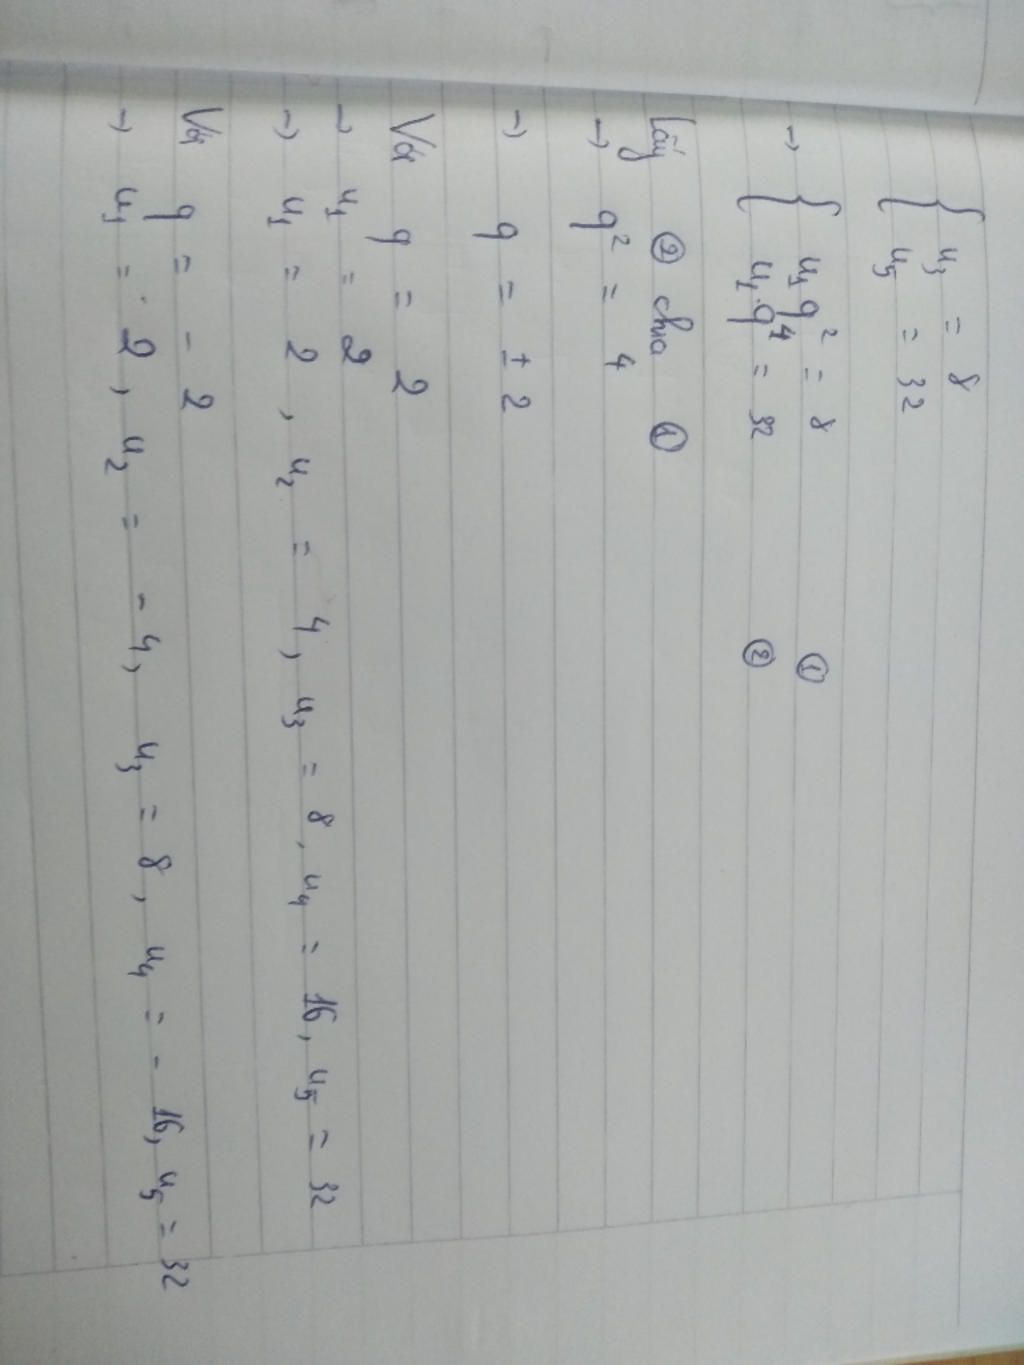 { u₃ = 8
u₅ = 32
→ { u₁q² = 8 ①
u₁q⁴ = 32 ②
Lấy ② chia ①
→ q² = 4
→ q = ± 2
Với q = 2
→ u₁ = 2
→ u₁ = 2 , u₂ = 4, u₃ = 8, u₄ = 16, u₅ = 32
Với q = - 2
→ u₁ = 2, u₂ = - 4, u₃ = 8, u₄ = - 16, u₅ = 32